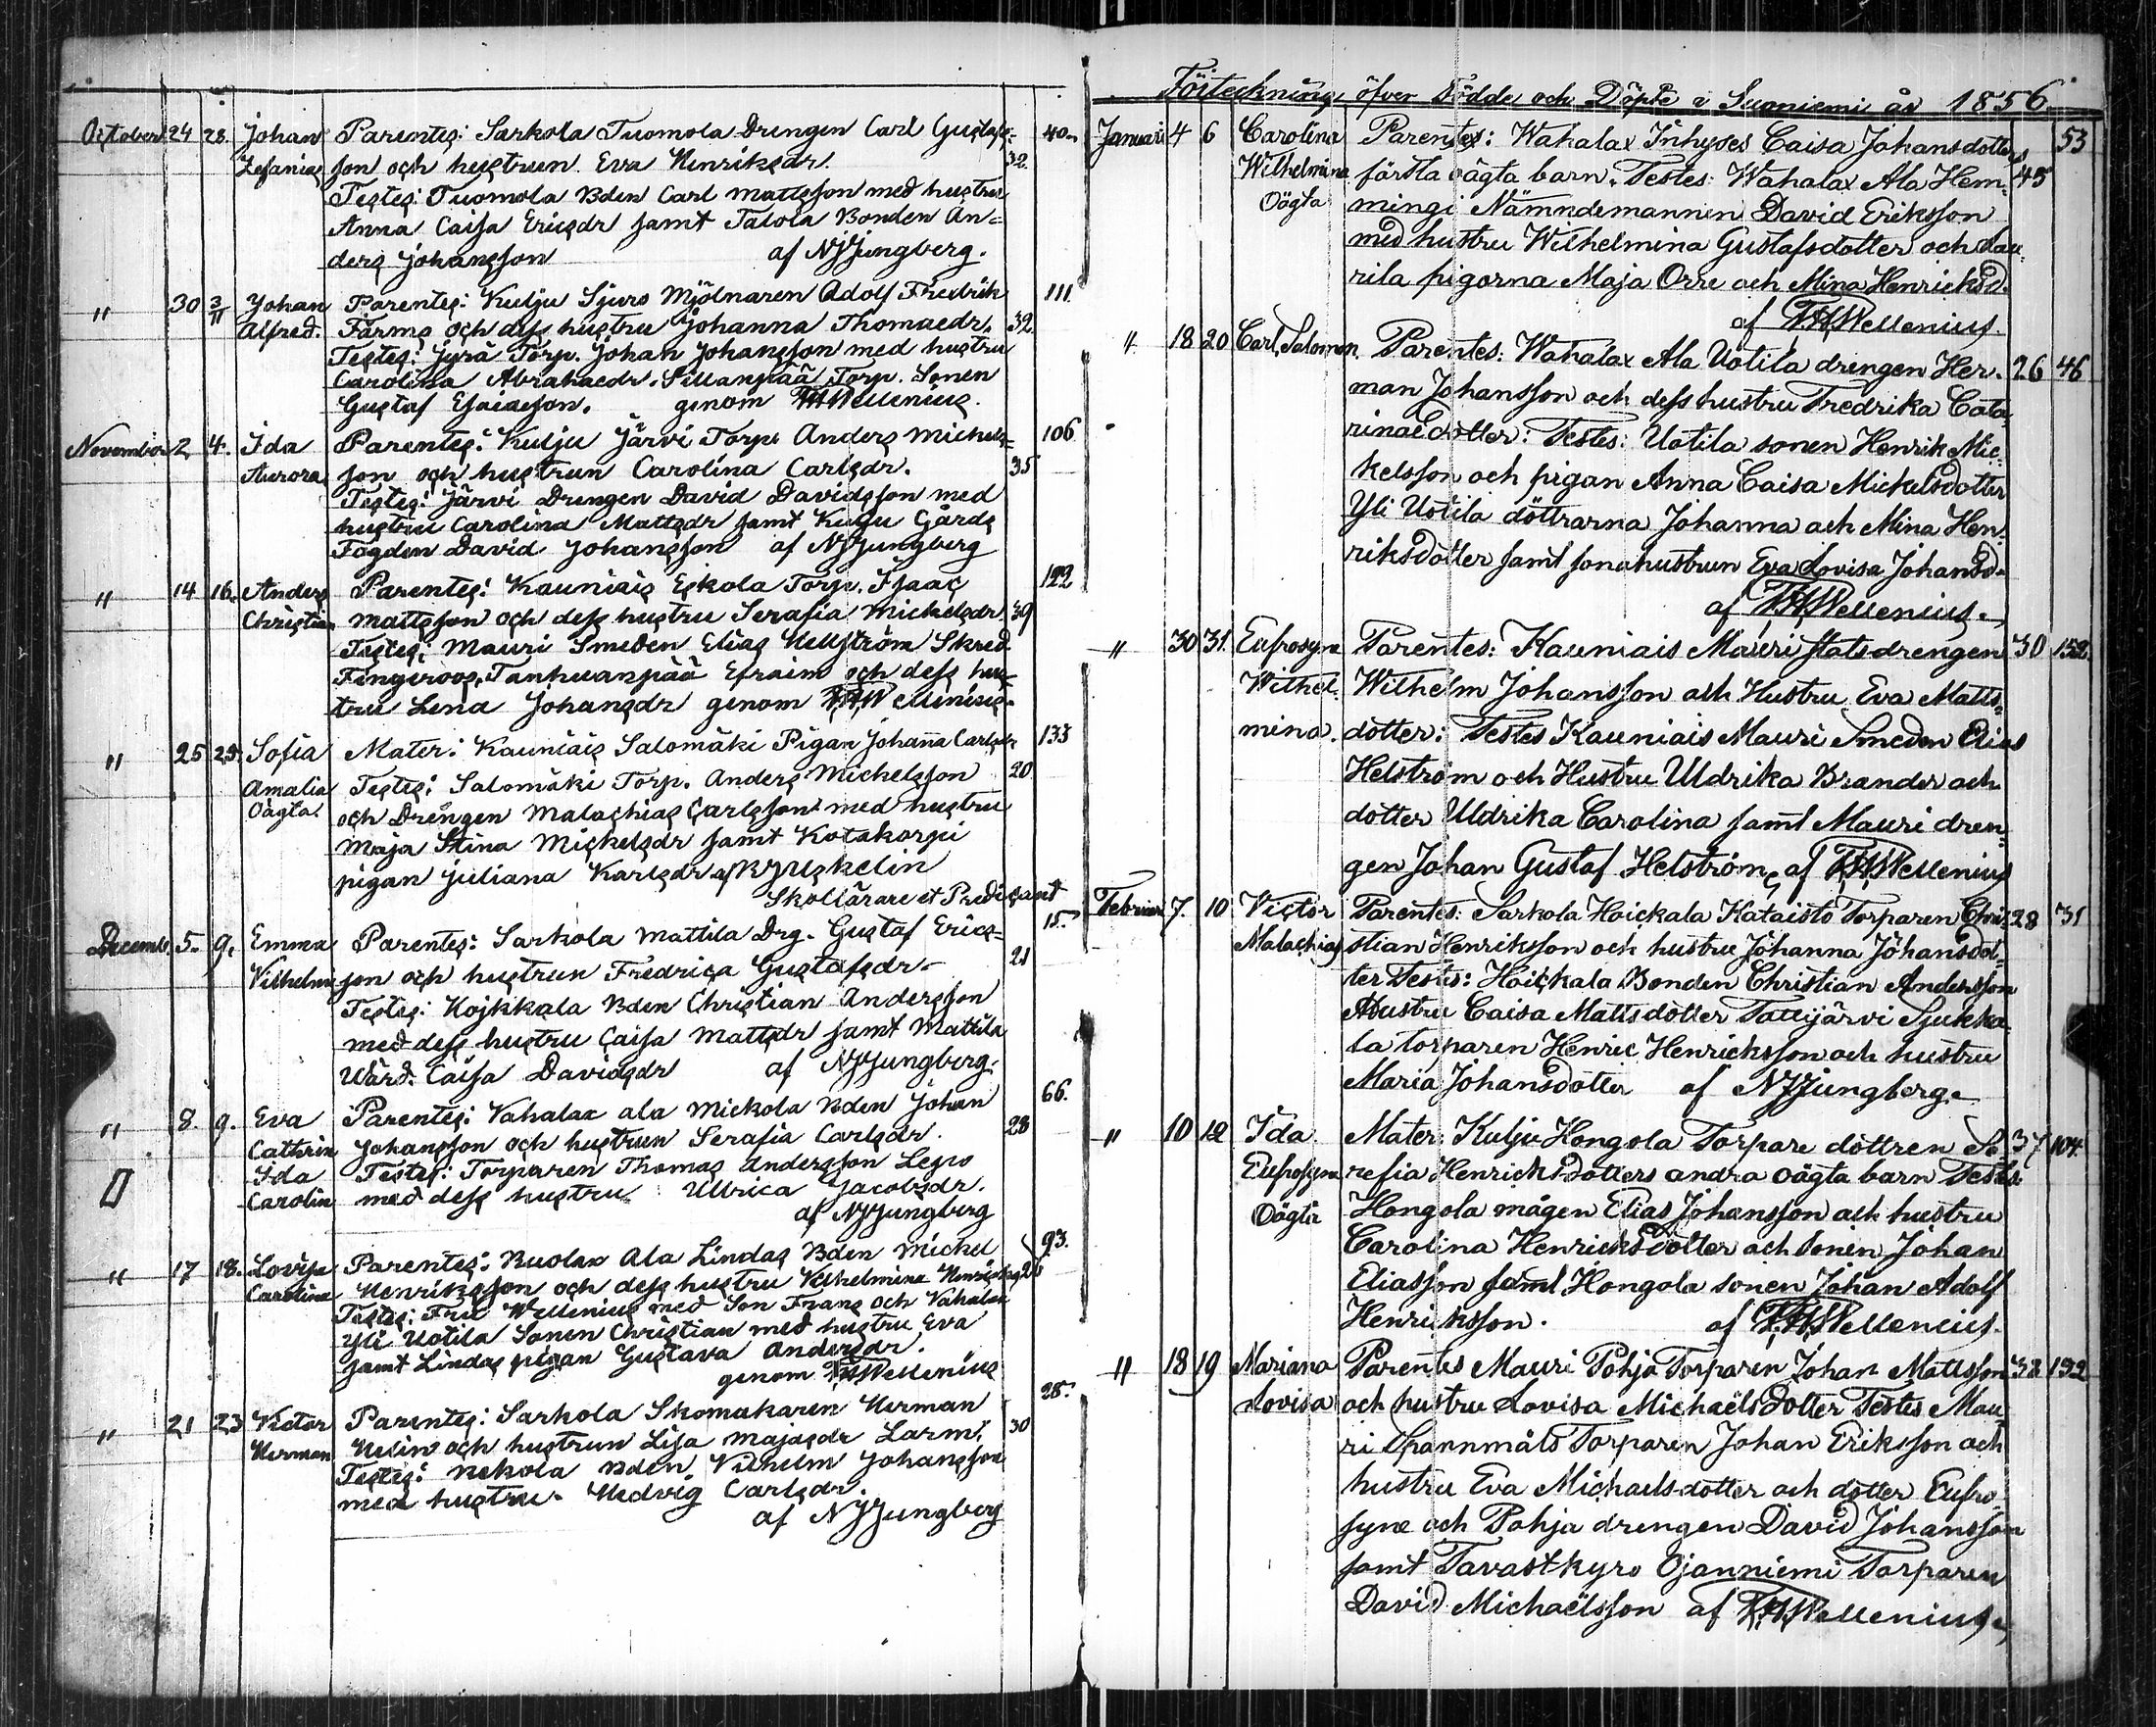 October 24 28. Johan Parentes: Sarkola Tuomola Drengen Carl Gustafs= 40.
Zefanias son och hustrun Eva Henriksdr. 32.
Testes: Tuomola Bden Carl Mattsson med hustru
Anna Caisa Ericsdr samt Talola Bonden An=
ders Johansson af NJJungberg.
" 30 2/11 Johan Parentes: Kulju Sjuro Mjölnaren Adolf Fredrik 111.
Alfred. Farms och dess hustru Johanna Thomaedr. 32.
Testes: Jyrä Torp. Johan Johansson med hustru
Carolina Abrahaedr. Sillanpää Torp. Sonen
Gustaf Esaiasson. genom FHWellenius.
November 2 4. Ida Parentes: Kulju Järvi Torp. Anders Michels= 106.
Aurora son och hustrun Carolina Carlsdr. 35
Testes: Järvi Drengen David Davidsson med
hustru Carolina Mattsdr samt Kulju Gårds
Fogden David Johansson af NJJungberg
" 14 16. Anders Parentes: Kauniais Eskola Torp. Isaac 122
Christian Mattsson och dess hustru Serafia Mickelsdr. 39
Testes: Mauri Smeden Elias Hellström Skred.
Fingerroos, Tanhuanpää Efraim och dess hus=
tru Lena Johansdr genom FHWellenius.
" 25 25. Sofia Mater: Kauniais Salomäki Pigan Johanna Carlsdr 133
Amalia Testes: Salomäki Torp. Anders Michelsson 20
Oägta. och Drängen Malachias Carlsson med hustru
Maja Stina Michelsdr samt Kotakorpi
pigan Juliana Karlsdr af
Skollärare et Predicant
December 5. 9. Emma Parentes: Sarkola Mattila Drg. Gustaf Erics= 15.
Vilhelmi son och hustrun Fredrica Gustafsdr. 21
Testes: Hojkkala Bden Christian Andersson
med dess hustru Caisa Mattsdr samt Mattila
Wärd. Caisa Davidsdr af NJJungberg.
" 8. 9. Eva Parentes: Vahalax ala Mickola Bden Johan 66.
Cathrin Johansson och hustrun Serafia Carlsdr. 28
Ida Testes: Torparen Thomas Andersson Lepo
Carolin med dess hustru Ullrica Jacobsdr.
af NJJungberg
" 17 18. Lovisa Parentes: Kuolax Ala Lindas Bden Mickel 93.
Carolina Henriksson och dess hustru Vilhelmina Henriksdr
Testes: Fru Wellenius med Son Frans och Vahalax
Yli Uotila Sonen Christian med hustru Eva
samt Lindas pigan Gustava Andersdr.
genom FHWellenius
" 21 23 Victor Parentes: Sarkola Skomakaren Herman 28.
Herman Helin och hustrun Lisa Majasdr Larm. 30
Testes: Rekola Bden Vilhelm Johansson
med hustru. Hedvig Carlsdr.
af NJJungberg
Förteckning öfver Födde och Döpte i Suoniemi år 1856.
Januari 4 6 Carolina Parentes: Wahalax Inhyses Caisa Johansdotters 53
Wilhelmina första oägta barn. Testes: Wahalax Ala Hem= 45
Oägta mingi Nämndemannen David Eriksson
med hustru Wilhelmina Gustafsdotter och Lau
rila pigorna Maja Orre och Mina Henriksd.
af FHWellenius.
" 18 20 Carl Salomon Parentes: Wahalax Ala Uotila drengen Her= 26 46
man Johansson och dess hustru Fredrika Cata
rinaedotter: Testes: Uotila sonen Henrik Mic
kelsson och pigan Anna Caisa Mickelsdotter
Yli Uotila döttrarna Johanna och Mina Hen=
riksdotter samt sonahustrun Eva Lovisa Johansd.
af FHWellenius.
" 30 31. Eufrosyne Parentes: Kauniais Mauri statsdrengen 30 152.
Wilhel= Wilhelm Johansson och Hustru Eva Matts=
mina. dotter: Testes Kauniais Mauri Smeden Elias
Helström och Hustru Uldrika Brander och
dotter Uldrika Carolina samt Mauri dren=
gen Johan Gustaf Helström, af FHWellenius
Februari 7. 10 Victor Parentes: Sarkola Hoickala Kataisto Torparen Chri= 28 31
Malachias stian Henriksson och hustru Johanna Johansdot
ter Testes: Hoickala Bonden Christian Andersson
Hustru Caisa Mattsdotter Tattijärvi Sjukka
la torparen Henric Henricksson och hustru
Maria Johansdotter af NJJungberg.
" 10 12 Ida Mater: Kulju Hongola Torpare dottren Se 37 104.
Eufrosyne refia Henricksdotters andra oägta barn Testes
Oägta Hongola mågen Elias Johansson och hustru
Carolina Henricksdotter och sonen Johan
Eliasson samt Hongola sonen Johan Adolf
Henriksson. af FHWellenius.
" 18 19 Mariana Parentes Mauri Pohja Torparen Johan Mattsson 38 152
Lovisa och hustru Lovisa Michaëlsdotter Testes Mau
ri Spannmåls Torparen Johan Eriksson och
hustru Eva Michaelsdotter och dotter Eufro
syne och Pohja drengen David Johansson
samt Tavastkyro Ojanniemi Torparen
David Michaëlsson af FHWellenius.